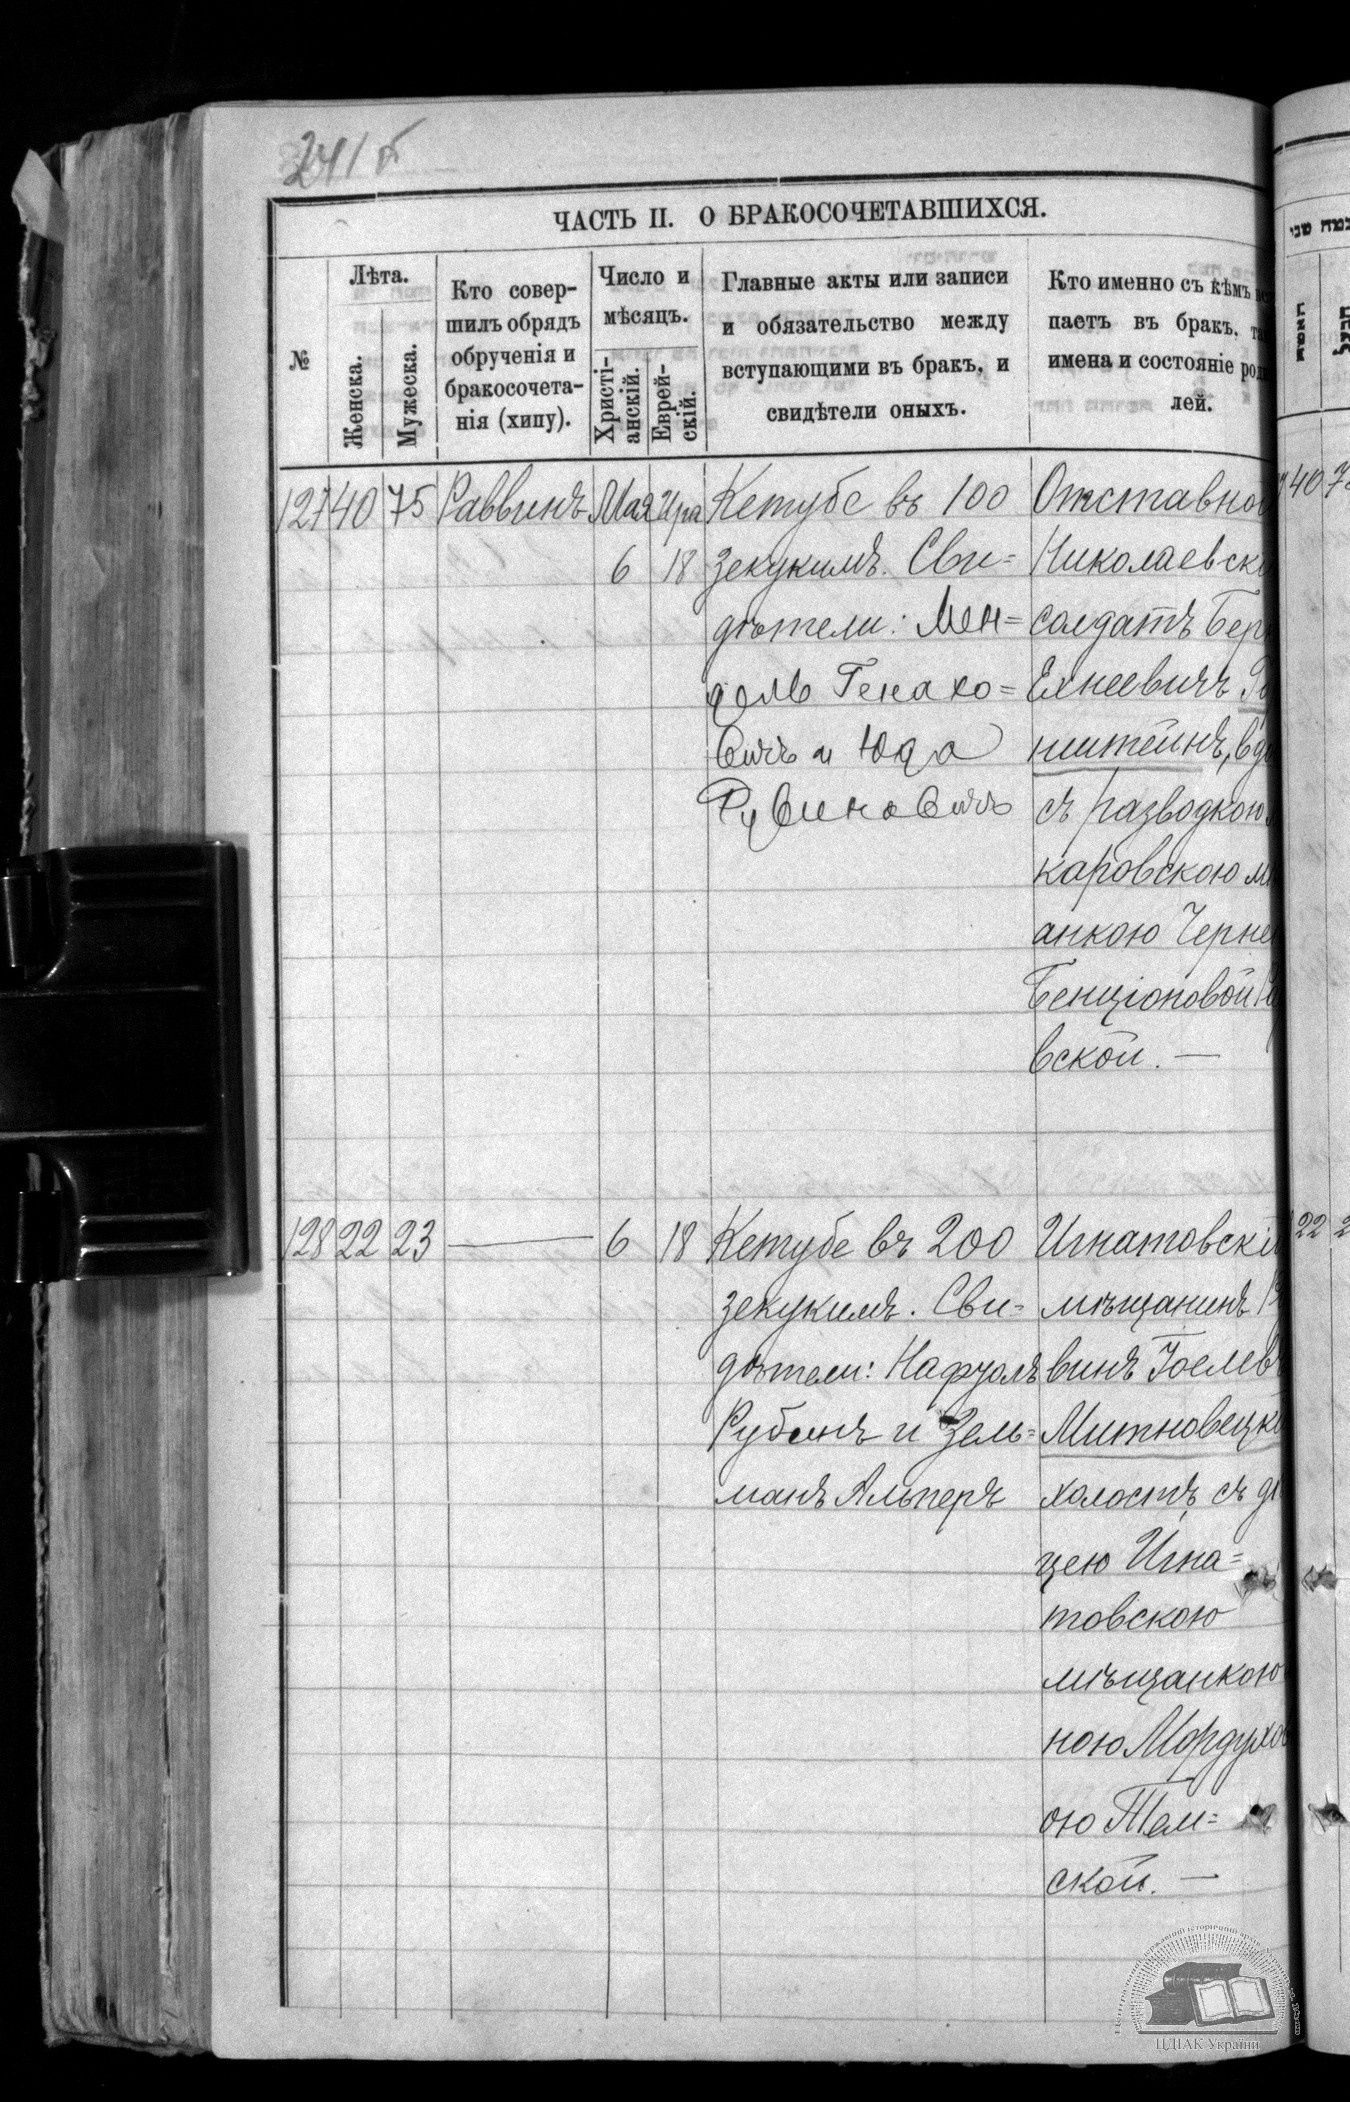 241 б
ЧАСТЬ II. О БРАКОСОЧЕТАВШИХСЯ.
№
Лѣта.
Женска.
Мужеска.
Кто совер-
шилъ обрядъ
обрученія и
бракосочета-
нія (хипу).
Число и
мѣсяцъ.
Христі-
анскій.
Еврей-
скій.
Главные акты или записи
и обязательство между
вступающими въ бракъ, и
свидѣтели оныхъ.
Кто именно съ кѣмъ
паетъ въ бракъ,
имена и состояніе
лей.
127 40 75 Раввинъ Мая Ира
6 18
Кетубе въ 100
зекукимъ. Сви=
дѣтели: Мен=
дель Генахо=
вичъ и Юда
Рувиновичъ
Отставной
Николаевск
солдатъ Бер
Ехнеевичъ
нштейнъ, вд
съ разводкою
каровскою м
анкою Черне
Бенціоновой
вской. —
128 22 23 — 6 18
Кетубе въ 200
зекукимъ. Сви=
дѣтели: Нафтуль
Рубинъ и Зель=
манъ Альперъ
Игнатовскі
мѣщанинъ
винъ Іоелев
Митновецк
холостъ съ дѣ
цею Игна=
товскою
мѣщанкою
ною Мордухов
ою Тем=
ской. —
40
22
ЦДІАК України